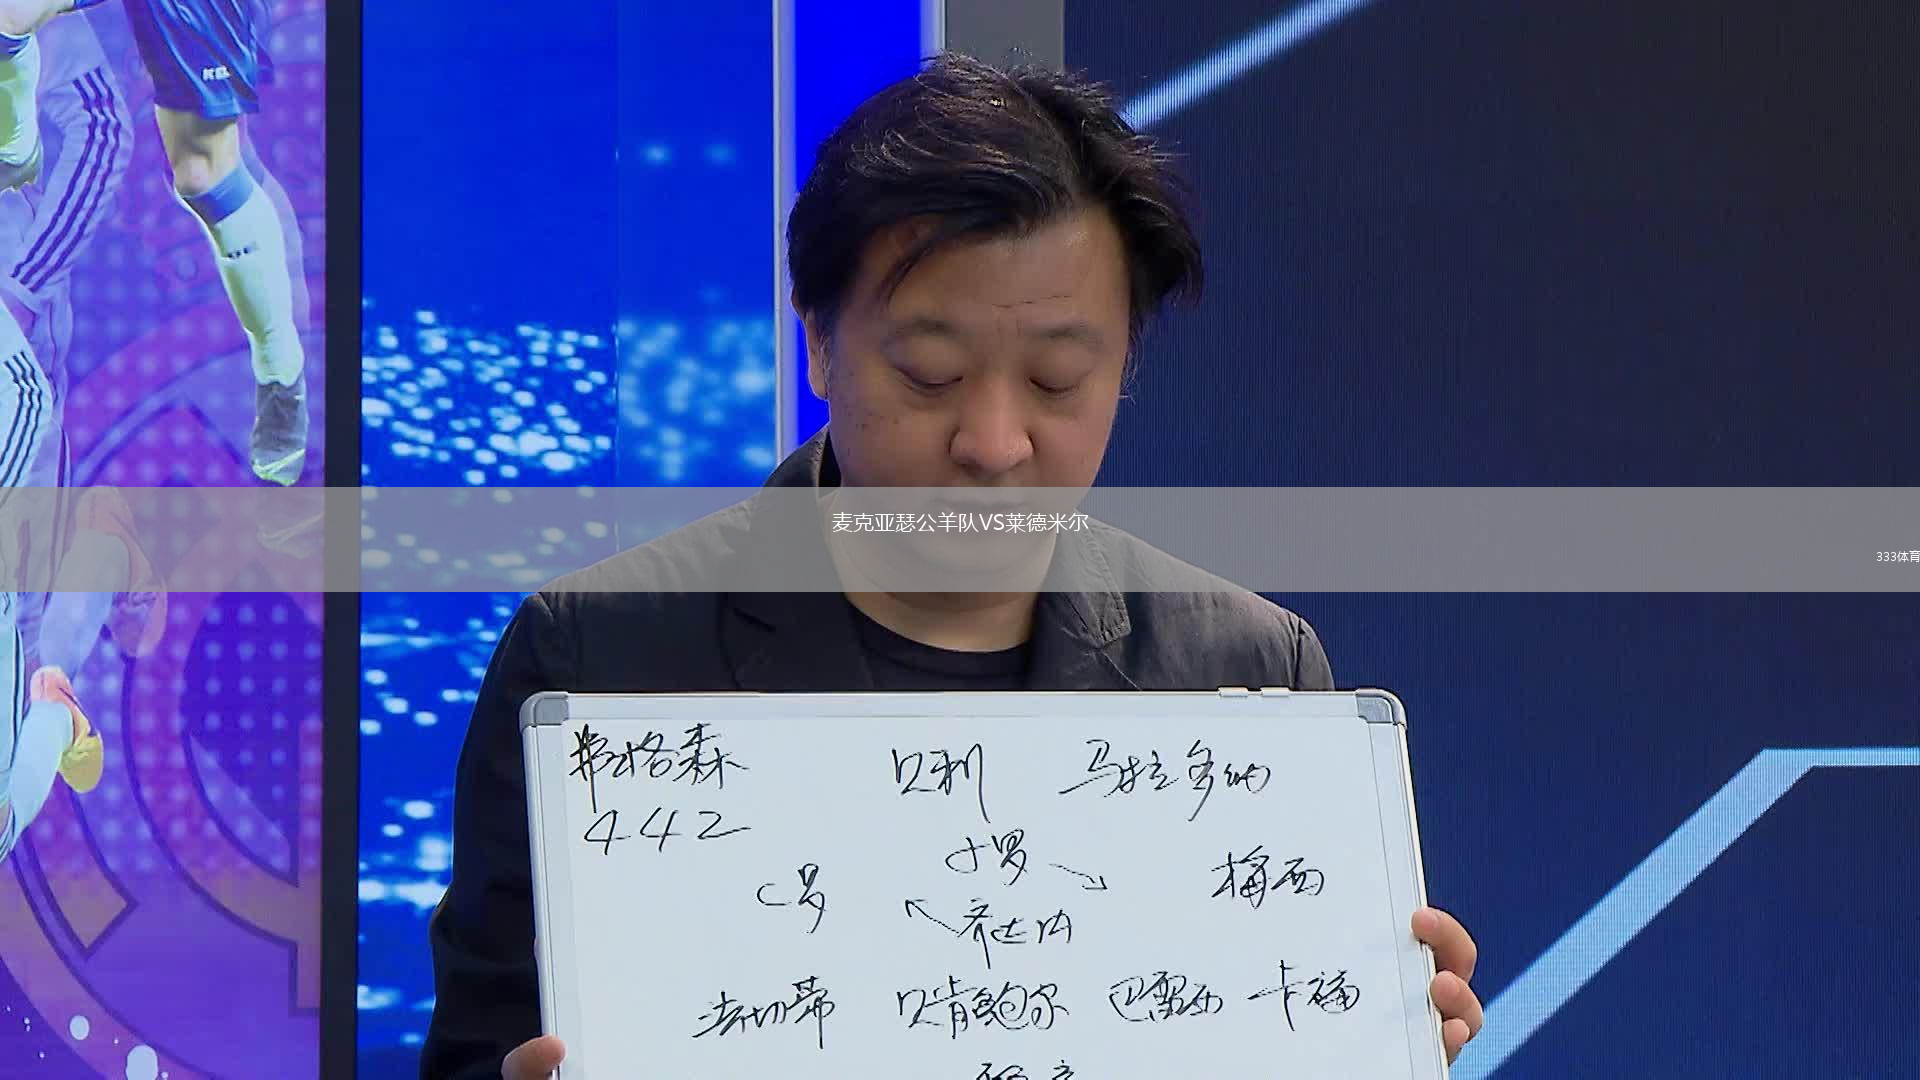 麦克亚瑟公羊队VS莱德米尔
333体育
弗格森 贝利 马拉多纳
442
小罗
C罗 梅西
齐达内
法切蒂 贝肯鲍尔 巴雷西 卡福